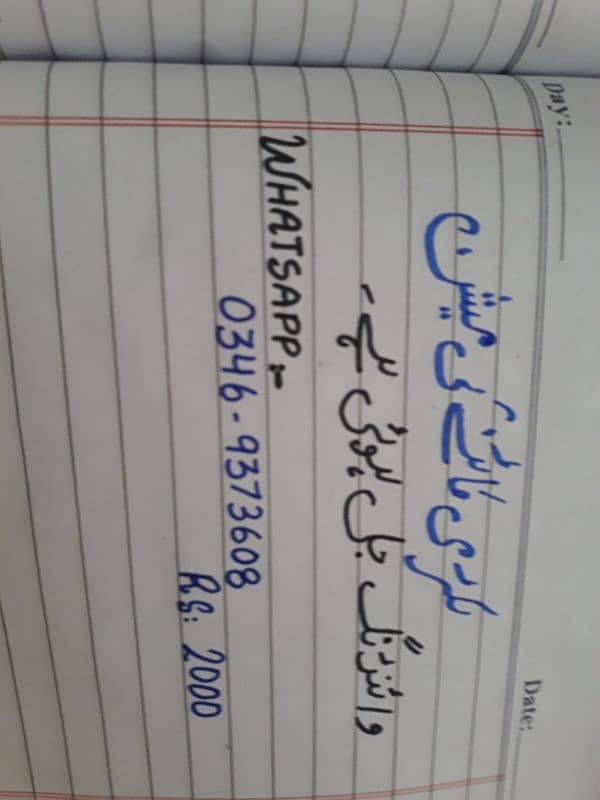 Day:
Date:
لکڑی کاٹنے کی میشن
وائنڈنگ جلی ہوئی ہے -
WHATSAPP:-
0346-9373608
RS: 2000